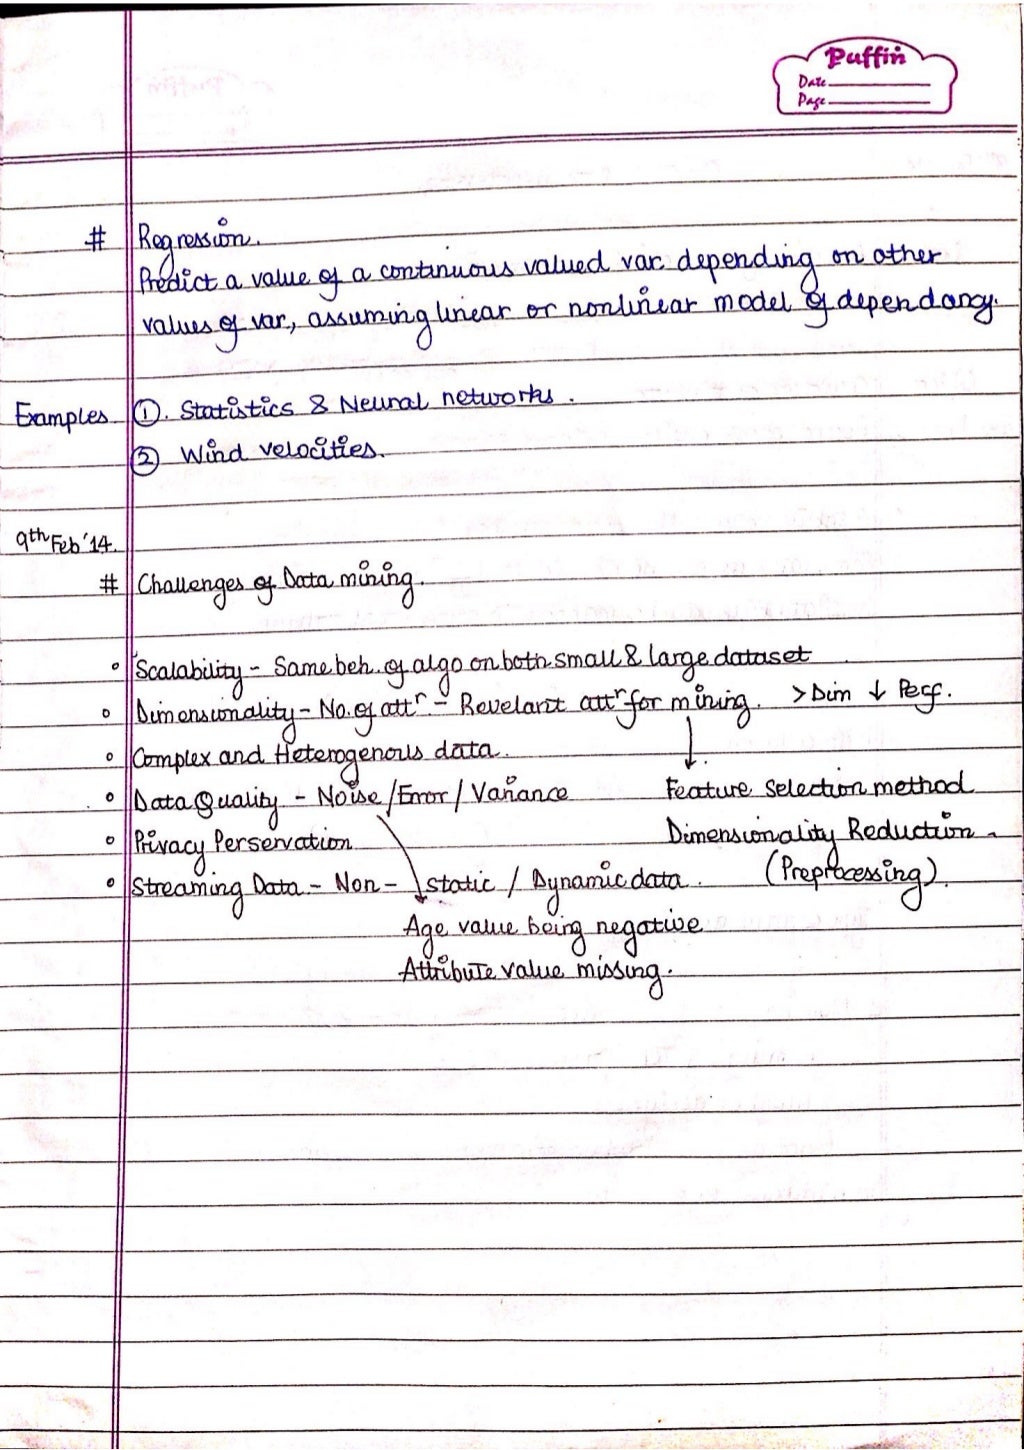 Puffin
Date
Page
# Regression.
Predict a value of a continuous valued var. depending on other
values of var, assuming linear or nonlinear model of dependancy.
Examples ①. Statistics & Neural networks.
② Wind velocities.
9th Feb'14.
# Challenges of Data mining.
Scalability - Same beh. of algo on both small & large dataset
Dimensionality - No. of attr - Revelant attr for mining. >Dim ↓ Perf.
Complex and Heterogenous data.
Data Quality - Noise/Error/Variance Feature Selection method
Privacy Perservation Dimensionality Reduction.
Streaming Data - Non - static / Dynamic data. (Preprocessing).
Age value being negative
Attribute value missing.